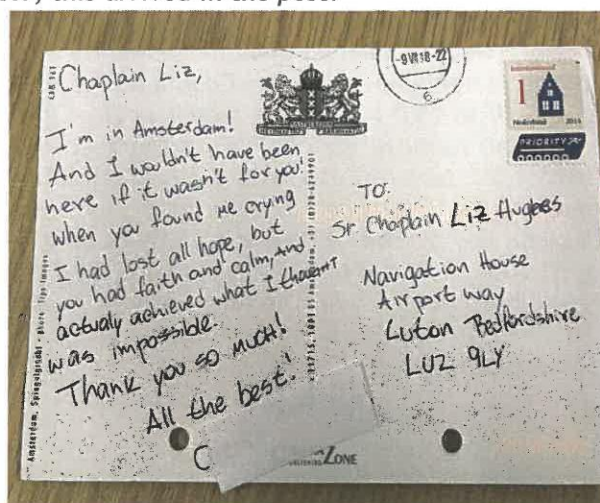 Chaplain Liz,
I'm in Amsterdam!
And I wouldn't have been
here if it wasn't for you!
when you found me crying
I had lost all hope, but
you had faith and calm, and
actualy achieved what I thought
was impossible.
Thank you so much!
All the best!
C
-9 VII 18-22
6
1
Nederland 2014
PRIORITY
TO:
Sr Chaplain Liz Hughes
Navigation House
Airport way
Luton Bedfordshire
LU2 9LY
ZONE